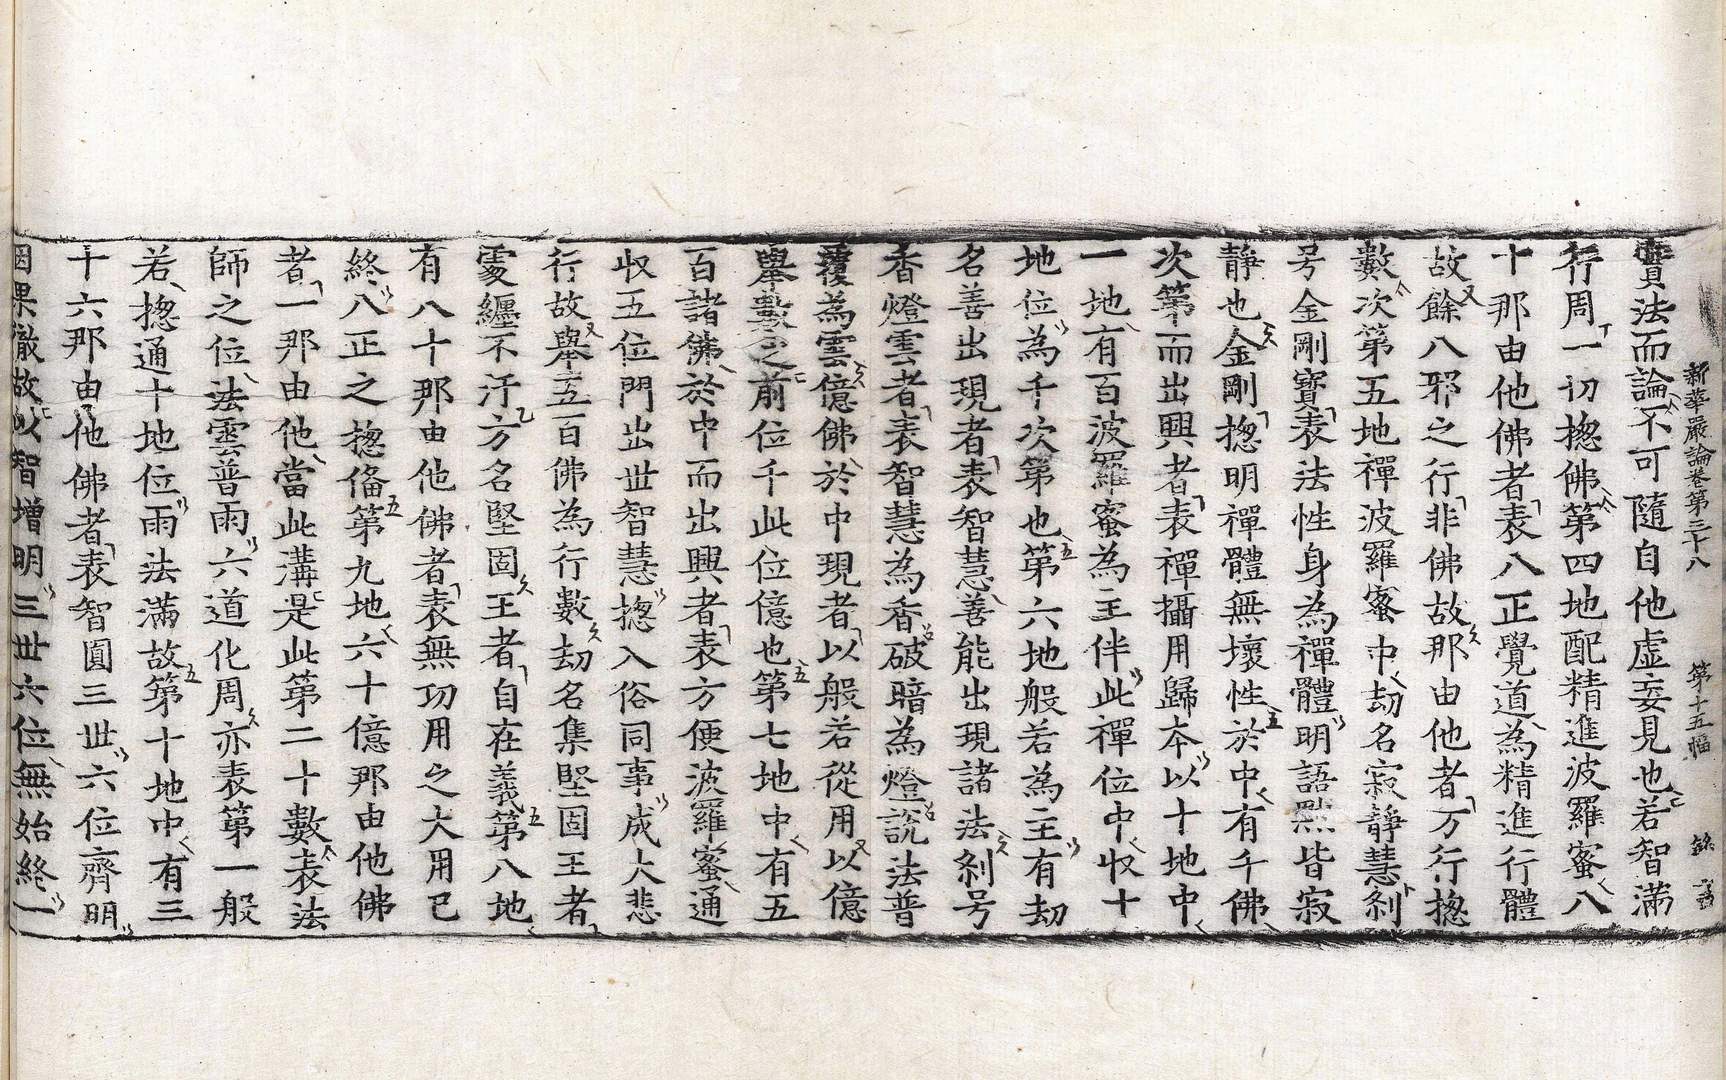 新華嚴論卷第三十八　第十五幅　錄
實法而論不可隨自他虛妄見也若智滿
行周一切揔佛第四地配精進波羅蜜八
十那由他佛者表八正覺道為精進行體
故餘八邪之行非佛故那由他者万行揔
數次第五地禪波羅蜜中劫名寂靜慧剎
号金剛寶表法性身為禪體明語黙皆寂
靜也金剛揔明禪體無壞性於中有千佛
次第而出興者表禪攝用歸夲以十地中
一地有百波羅蜜為主伴此禪位中収十
地位為千次第也第六地般若為主有劫
名善出現者表智慧善能出現諸法剎号
香燈雲者表智慧為香破暗為燈說法普
覆為雲億佛於中現者以般若從用以億
舉數之前位千此位億也第七地中有五
百諸佛於中而出興者表方便波羅蜜通
収五位門出世智慧揔入俗同事成大悲
行故舉五百佛為行數劫名集堅固王者
處纏不汙方名堅固王者自在義第八地
有八十那由他佛者表無功用之大用已
終八正之揔俻第九地六十億那由他佛
者一那由他當此溝是此第二十數表法
師之位法雲普雨六道化周亦表第一般
若揔通十地位雨法滿故第十地中有三
十六那由他佛者表智圓三世六位齊明
因果徹故以智增明三世六位無始終一